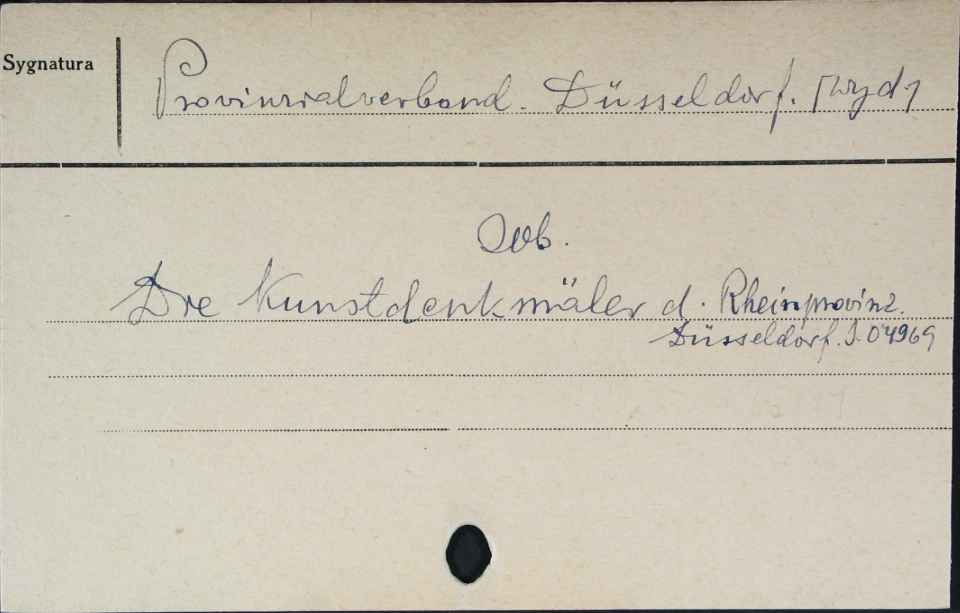 Sygnatura
Provinzialverband. Düsseldorf. [wyd]
Ob.
Die Kunstdenkmäler d. Rheinprovinz.
Düsseldorf. J. 04969